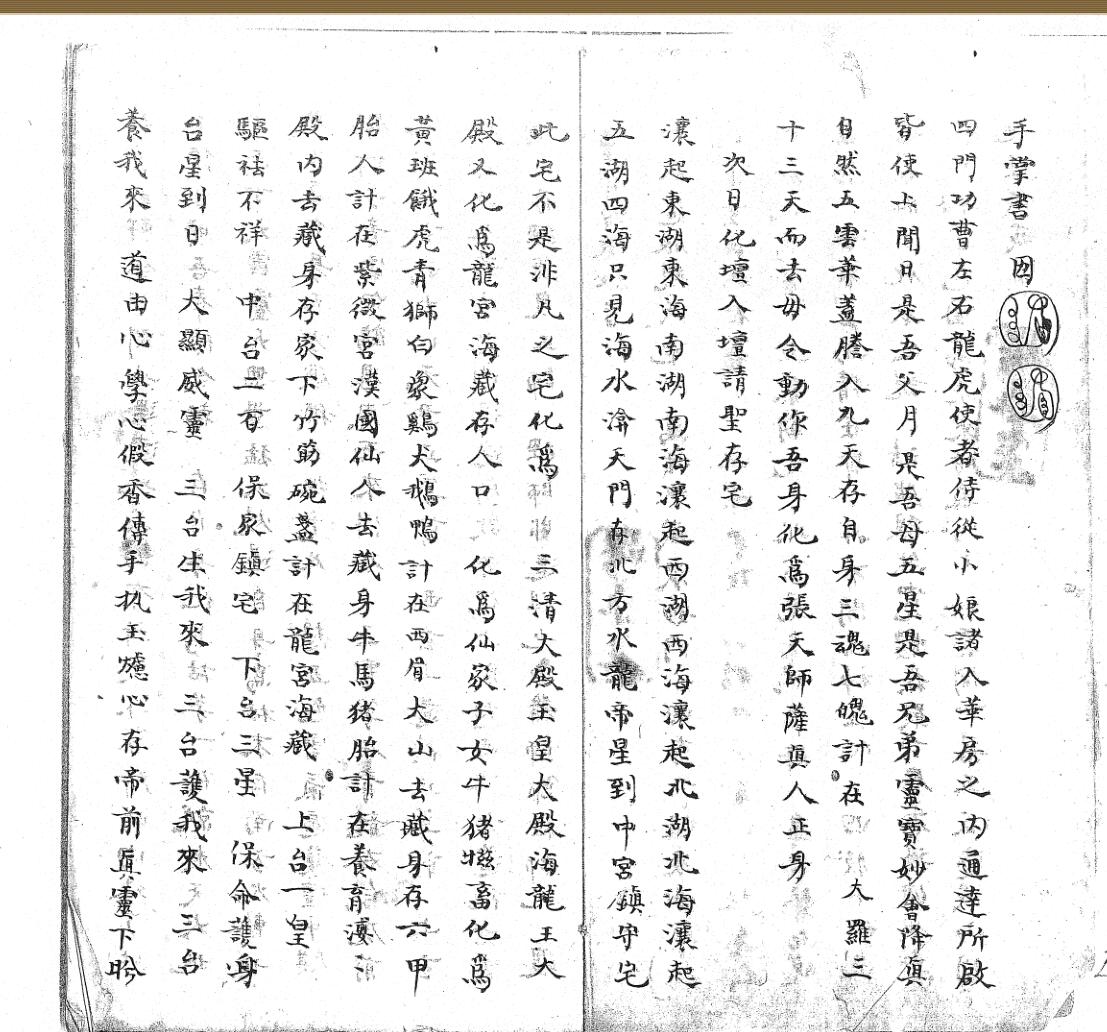 手掌書
四門功曹左右龍虎使者侍從小娘諸入華房之内通達所啟
皆使上聞日是吾父月是吾母五星是吾兄弟靈寶妙會降真
自然五雲華蓋騰入九天存自身三魂七魄計在大羅三
十三天而去毋令動作吾身化爲張天師薩真人正身
次日化壇入壇請聖存宅
瀼起東湖東海南湖南海瀼起西湖西海瀼起北湖北海瀼起
五湖四海只見海水渰天門存北方水龍帝星到中宮鎮守宅
此宅不是非凡之宅化爲 三清大殿玉皇大殿海龍王大
殿又化爲龍宮海藏存人口 化爲仙家子女牛猪牸畜化爲
黃班餓虎青獅白象鷄犬鵝鴨計在西眉大山去藏身存六甲
胎人計在紫微宮漢國仙人去藏身牛馬猪胎計在養育
殿内去藏身存家下竹筯碗盞計在龍宮海藏 上台一皇
驅祛不祥 中台二百保家鎮宅 下台三星 保命護身
台星到日 大顯威靈 三台生我來 三台護我來 三台
養我來 道由心學心假香傳手执玉爐心存帝前真靈下盻